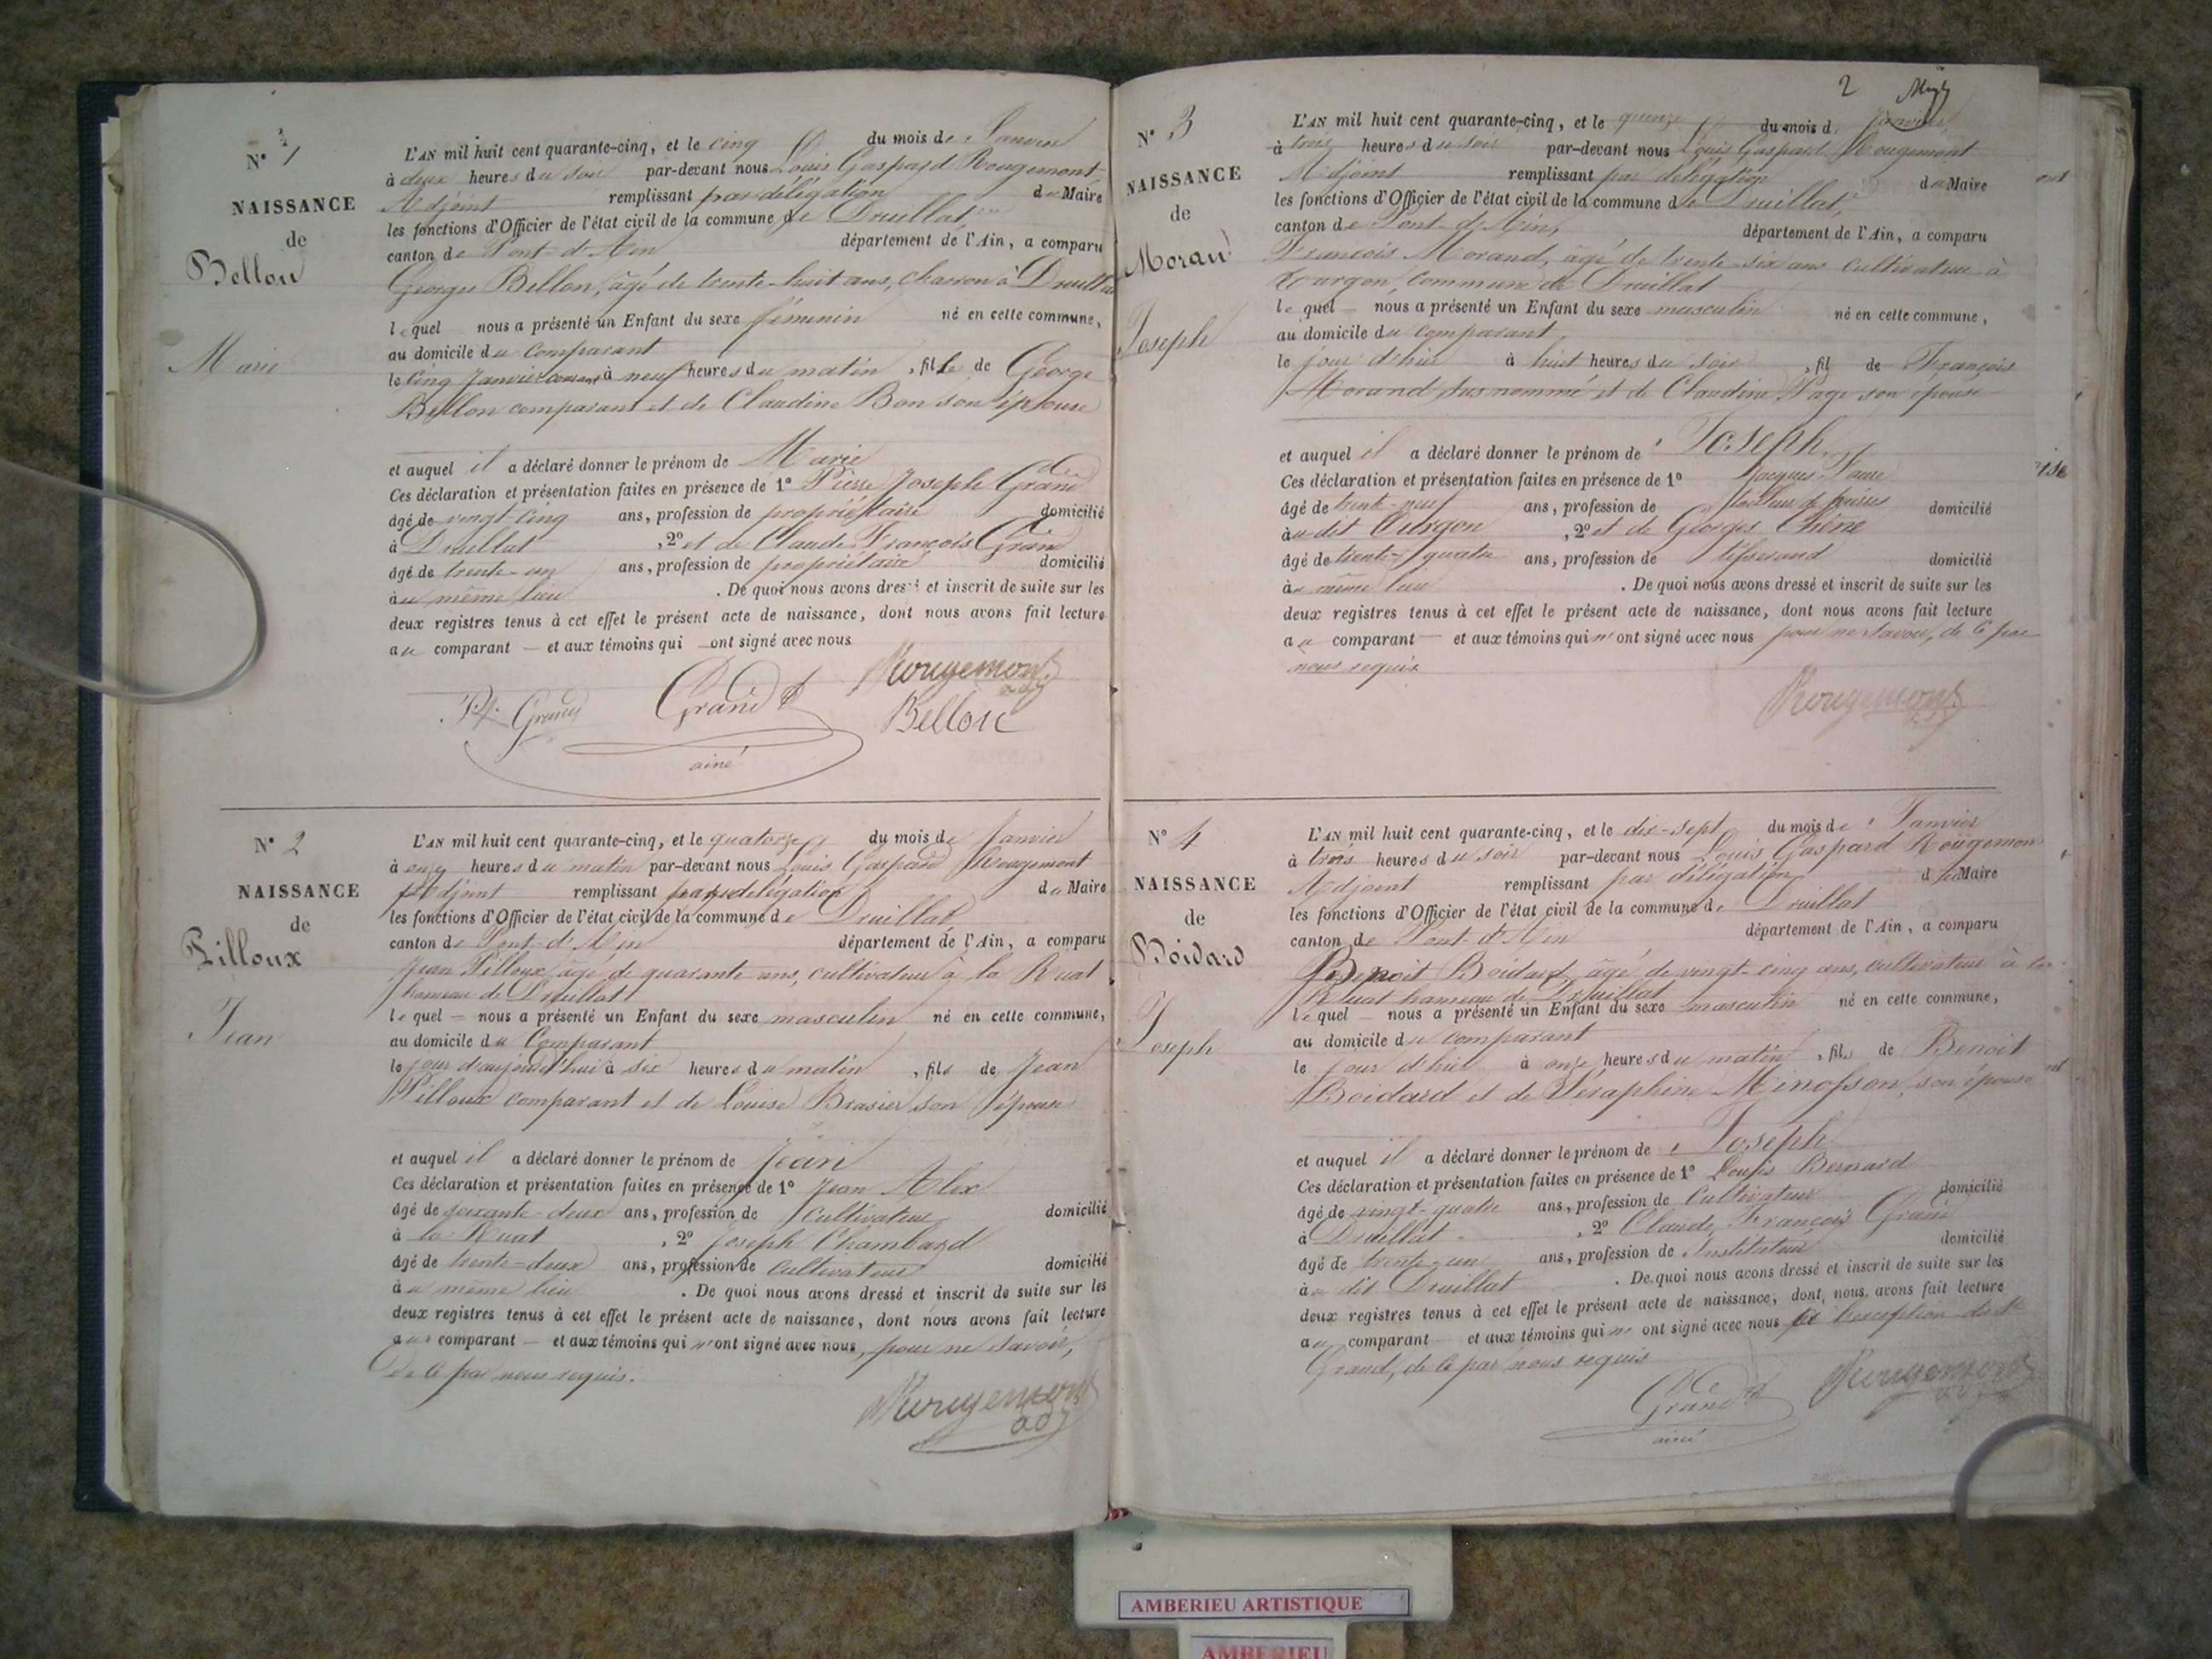 N° 1
NAISSANCE
de
Bellon
Marie
L'AN mil huit cent quarante-cinq, et le cinq du mois de Janvier
à deux heures du soir par-devant nous Louis Gaspard Rougemont
Adjoint remplissant par délégation du Maire
les fonctions d'Officier de l'état civil de la commune de Druillat
canton de Pont-d'Ain département de l'Ain, a comparu
George Bellon, âgé de trente-huit ans, charron à Druillat
lequel nous a présenté un Enfant du sexe féminin né en cette commune,
au domicile du comparant
le cinq Janvier courant à neuf heures du matin, fille de George
Bellon comparant et de Claudine Bon son épouse
et auquel il a déclaré donner le prénom de Marie
Ces déclaration et présentation faites en présence de 1° Pierre Joseph Grand
âgé de vingt-cinq ans, profession de propriétaire domicilié
à Druillat, 2° et de Claude François Grand
âgé de trente-un ans, profession de propriétaire domicilié
au même lieu. De quoi nous avons dressé et inscrit de suite sur les
deux registres tenus à cet effet le présent acte de naissance, dont nous avons fait lecture
au comparant — et aux témoins qui ont signé avec nous.
Rougemont
adj
P. J. Grand Grand Bellon
ainé
N° 2
NAISSANCE
de
Pilloux
Jean
L'AN mil huit cent quarante-cinq, et le quatorze du mois de Janvier
à onze heures du matin par-devant nous Louis Gaspard Rougemont
Adjoint remplissant par délégation du Maire
les fonctions d'Officier de l'état civil de la commune de Druillat
canton de Pont-d'Ain département de l'Ain, a comparu
Jean Pilloux, âgé de quarante ans, cultivateur à la Ruat
hameau de Druillat
lequel — nous a présenté un Enfant du sexe masculin né en cette commune,
au domicile du Comparant
le jour d'aujourd'hui à six heures du matin, fils de Jean
Pilloux comparant et de Louise Brasier son épouse
et auquel il a déclaré donner le prénom de Jean
Ces déclaration et présentation faites en présence de 1° Jean Alex
âgé de soixante-deux ans, profession de Cultivateur domicilié
à la Ruat, 2° Joseph Chambard
âgé de trente-deux ans, profession de Cultivateur domicilié
au même lieu. De quoi nous avons dressé et inscrit de suite sur les
deux registres tenus à cet effet le présent acte de naissance, dont nous avons fait lecture
au comparant — et aux témoins qui n'ont signé avec nous, pour ne savoir,
de ce par nous requis.
Rougemont
adj
2
N° 3
NAISSANCE
de
Morand
Joseph
L'AN mil huit cent quarante-cinq, et le quinze du mois d Janvier
à trois heures du soir par-devant nous Louis Gaspard Rougemont
Adjoint remplissant par délégation du Maire
les fonctions d'Officier de l'état civil de la commune de Druillat,
canton de Pont-d'Ain, département de l'Ain, a comparu
François Morand, âgé de trente-six ans cultivateur à
Turgon, commune de Druillat
lequel — nous a présenté un Enfant du sexe masculin né en cette commune,
au domicile du comparant
le jour d'hier à huit heures du soir, fil de François
Morand sus nommé et de Claudine Page son épouse
et auquel il a déclaré donner le prénom de Joseph
Ces déclaration et présentation faites en présence de 1° Jacques
âgé de trente-neuf ans, profession de domicilié
au dit Turgon, 2° et de Georges Chêne
âgé de trente-quatre ans, profession de tisserand domicilié
au même lieu. De quoi nous avons dressé et inscrit de suite sur les
deux registres tenus à cet effet le présent acte de naissance, dont nous avons fait lecture
au comparant — et aux témoins qui n'ont signé avec nous pour ne savoir, de ce par
nous requis
Rougemont
N° 4
NAISSANCE
de
Boidard
Joseph
L'AN mil huit cent quarante-cinq, et le dix-sept du mois de Janvier
à trois heures du soir par-devant nous Louis Gaspard Rougemon
Adjoint remplissant par délégation du Maire
les fonctions d'Officier de l'état civil de la commune de Druillat
canton de Pont-d'Ain département de l'Ain, a comparu
Benoit Boidard, âgé de vingt-cinq ans, cultivateur à la
Ruat hameau de Druillat
lequel — nous a présenté un Enfant du sexe masculin né en cette commune,
au domicile du comparant
le jour d'hier à onze heures du matin, fils de Benoit
Boidard et de Séraphine Minosson, son épouse
et auquel il a déclaré donner le prénom de Joseph
Ces déclaration et présentation faites en présence de 1° Louis Bernard
âgé de vingt-quatre ans, profession de Cultivateur domicilié
à Druillat, 2° Claude François Grand
âgé de trente-un ans, profession de Instituteur domicilié
au dit Druillat. De quoi nous avons dressé et inscrit de suite sur les
deux registres tenus à cet effet le présent acte de naissance, dont nous avons fait lecture
au comparant et aux témoins qui n'ont signé avec nous à l'exception de Sr
Grand, de ce par nous requis
Grand Rougemont
ainé
AMBERIEU ARTISTIQUE
AMBERIEU